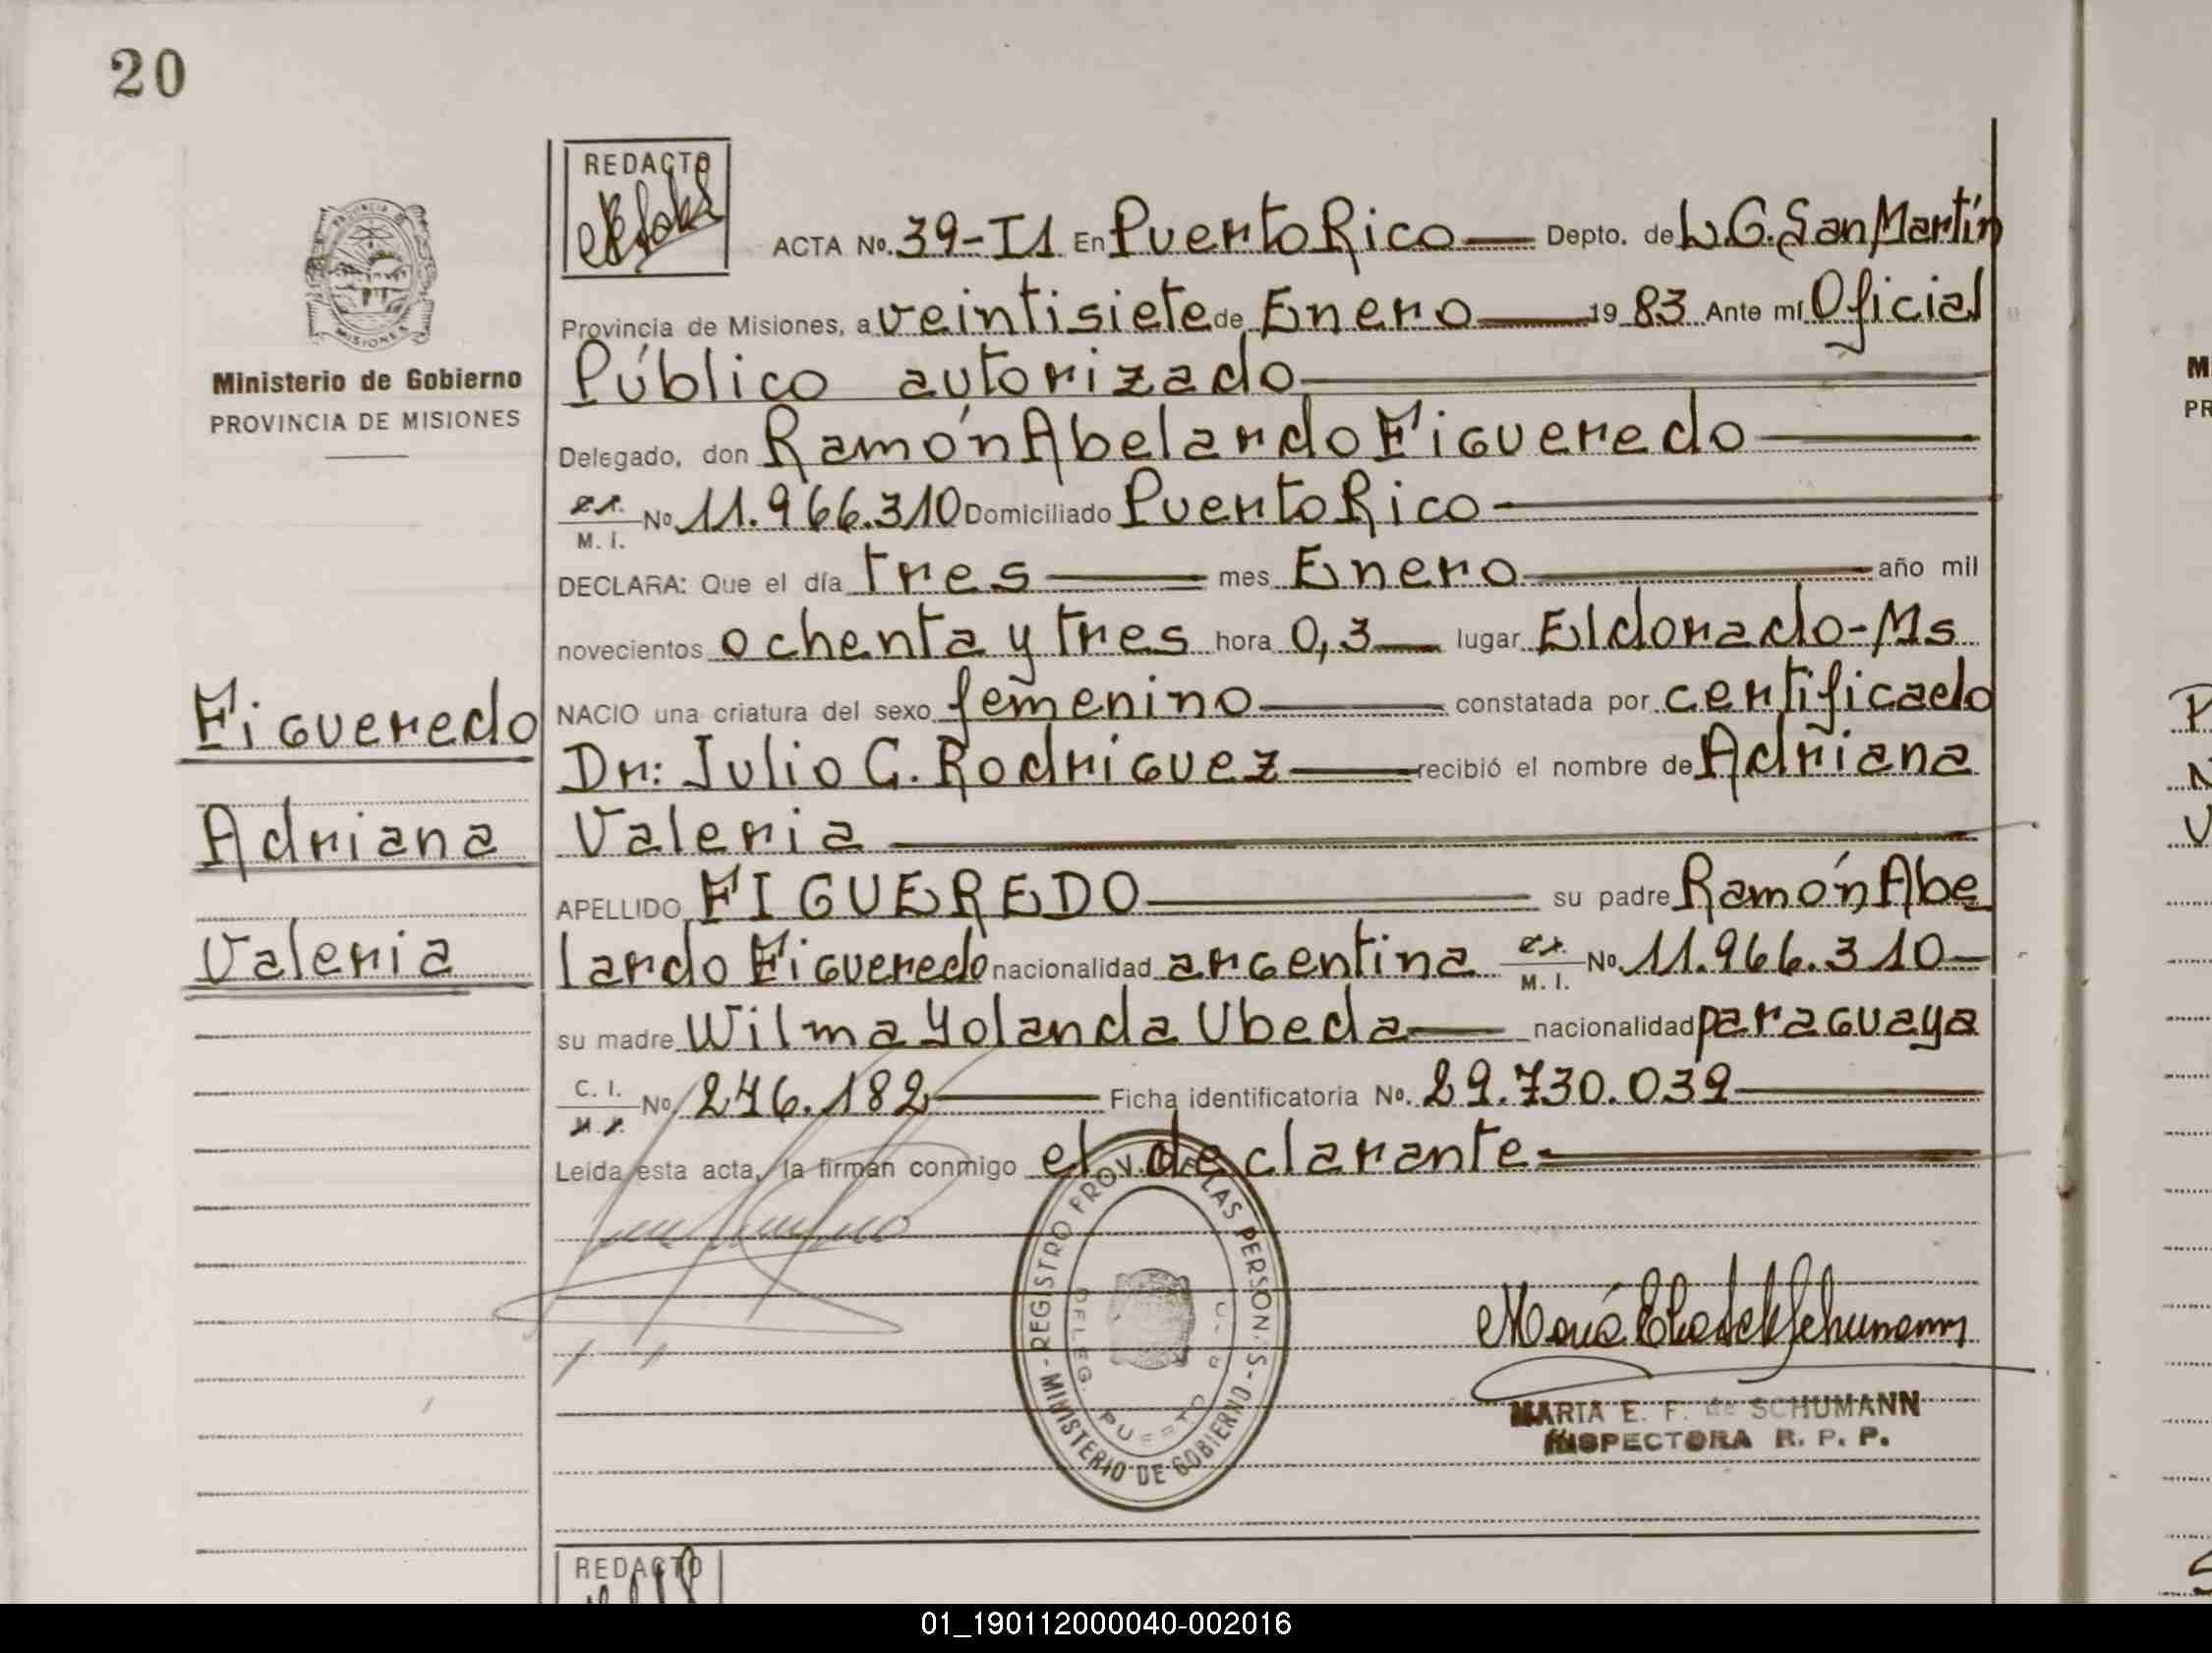 20
REDACTO
ACTA No. 39-T1 En Puerto Rico Depto. de L.G. San Martín
Provincia de Misiones, a veintisiete de Enero 19 83 Ante mí Oficial
Público autorizado
Delegado, don Ramón Abelardo Figueredo
No 11.966.310 Domiciliado Puerto Rico
M. I.
DECLARA: Que el día tres mes Enero año mil
novecientos ochenta y tres hora 0,3 lugar Eldorado-Ms
NACIO una criatura del sexo femenino constatada por certificado
Dr: Julio C. Rodriguez recibió el nombre de Adriana
Valeria
APELLIDO FIGUEREDO su padre Ramón Abe
lardo Figueredo nacionalidad argentina No. 11.966.310
M. I.
su madre Wilma Yolanda Ubeda nacionalidad paraguaya
C. I. No 246.182 Ficha identificatoria No. 29.730.039
Leída esta acta, la firman conmigo el declarante
PROVINCIA
MISIONES
Ministerio de Gobierno
PROVINCIA DE MISIONES
Figueredo
Adriana
Valeria
REGISTRO PROV. DE LAS PERSON.S - MINISTERIO DE GOBIERNO -
DELEG. PUERTO
María E. F. de Schumann
MARIA E. F. de SCHUMANN
INSPECTORA R. P. P.
REDACTO
M
PR
01_190112000040-002016